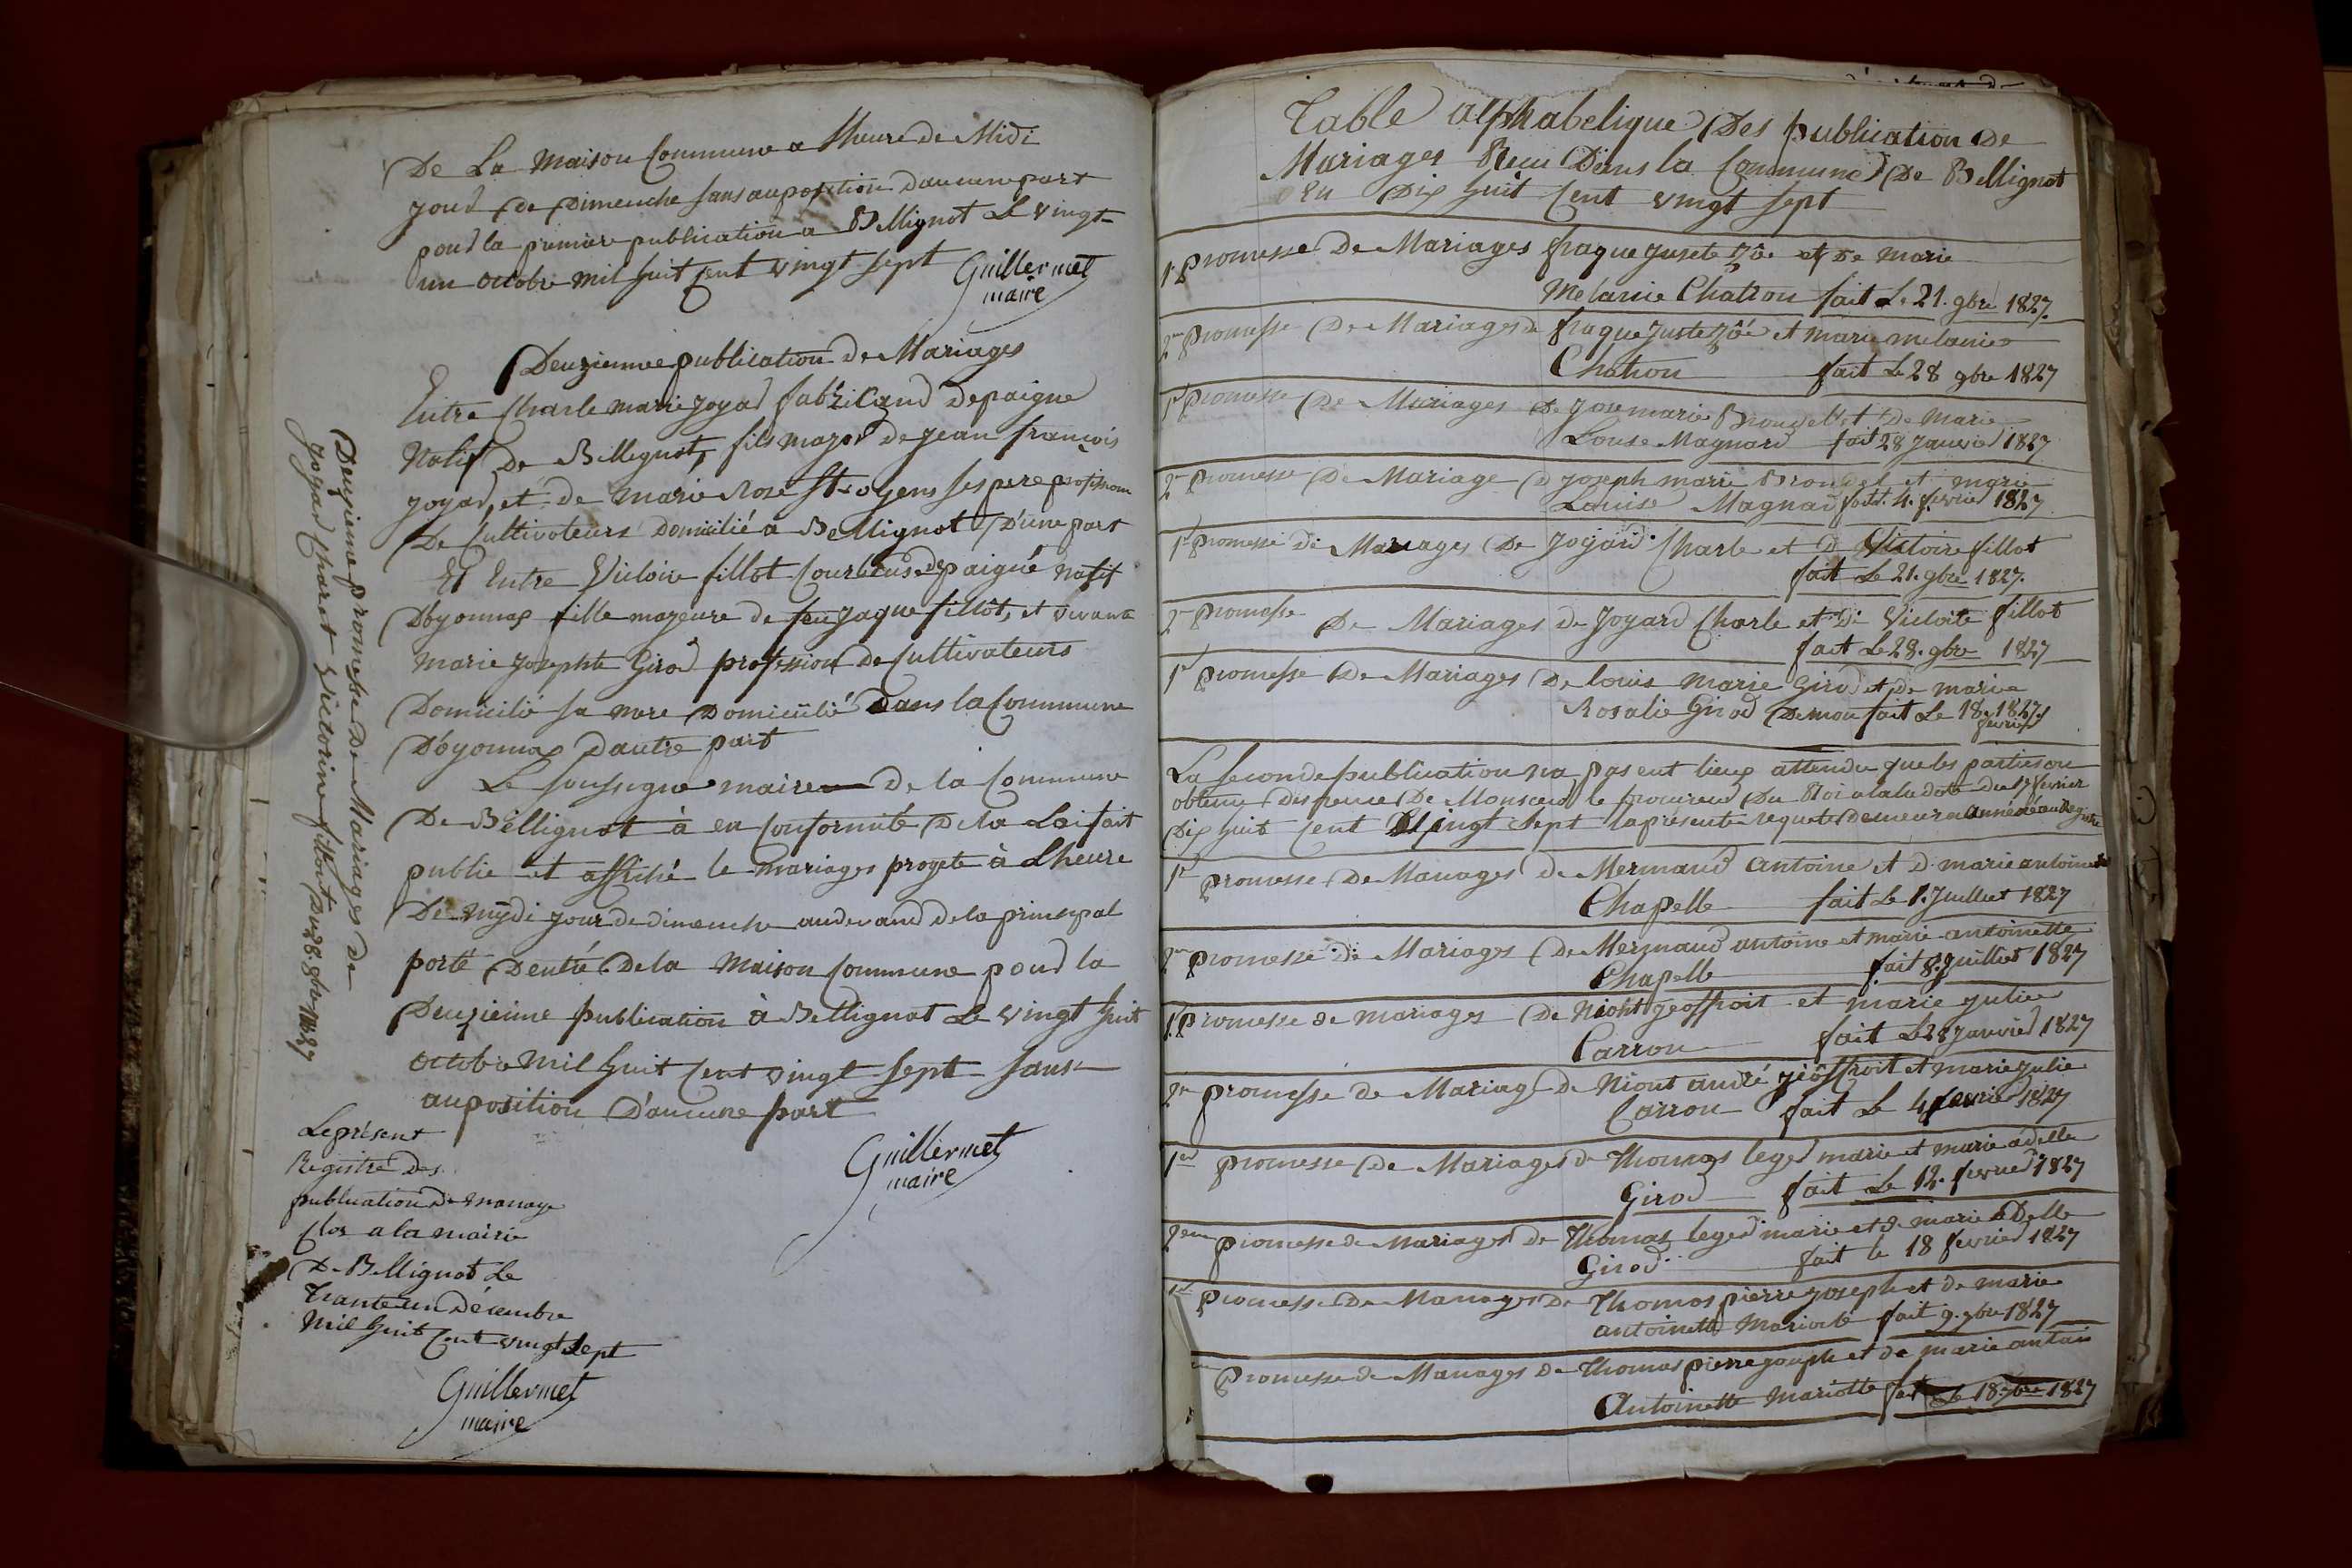 De La Maison Commune a lheure de Midi
jour de Dimenche sans auposition daucune part
pour la premiere publication a Bellignat Le vingt
un octobre mil huit cent vingt sept
Guillermet
maire
Deuzienne publication de Mariages
Entre Charle marie joyard fabricand depaigne
Natif De Bellignat, fils major de jean françois
joyard, et de marie Rose St-oyens ses pere profession
De Cultivateurs domicilié a Bellignat D'une part
Et Entre Victoire fillot Courbeuse depaigne Natif
D'oyonnax fille majeure de feu jaque fillot, et vivante
Marie josephte Girod profession de Cultivateurs
Domicilié sa mere Domicilié Dans la Commune
D'oyonnax D'autre part
Le soussigne maire De la Commune
De Bellignat à en Conformité De la Loi fait
publie et affiché le mariages projete à Lheure
De mydi jour de dimenche audevand de la principal
porte D'entré De la Maison Commune pour la
Deuzieime publication à Bellignat Le vingt huit
octobre Mil huit Cent vingt sept sans
auposition D'aucune part
Guillermet
maire
Deuzieime promesse De Mariages De
joyard Charle et Victorine fillot Du 28. 8bre 1827
Le présent
Registre Des
publication De mariage
Clos a la mairie
De Bellignat Le
Trante un Décembre
Mil huit Cent vingt Sept
Guillermet
maire
Table alphabetique Des publication De
Mariages Recu Dans la Commune De Bellignat
En Dix huit Cent vingt sept
1er promesse De Mariages fraque juste et De marie
Melanie Chatron fait Le 21. 9bre 1827.
2me promesse De Mariages de fraque juste et marie melanie
Chatron fait Le 28 9bre 1827
1er promesse De Mariages De marie Brondel et De Marie
Louise Magnard fait 28 Janvier 1827
2me promesse De Mariage D joseph marie Brondel et marie
Louise Magnard fait. 4. fevrier 1827
1er promesse De Mariages De Joyard Charle et D Victoire fillot
fait Le 21. 9bre 1827.
2me promesse De Mariages de Joyard Charle et De Victoire fillot
fait Le 28. 9bre 1827
1er promesse De Mariages De louis Marie Girod et de marie
Rosalie Girod fait Le 18. 1827.
fevrier
La seconde publication na pas eut lieux attendu que les parties on
obtenu Dispence De Monsieur le procureur Du Roi a la date Du 17 fevrier
Dix huit Cent Vingt Sept la présente requete demeura annéxé au Registre
1er promesse De Mariages De Mermand Antoine et D. marie antoinette
Chapelle fait Le 1. Juillet 1827
2me promesse de Mariages De Mermand antoine et marie antoinette
Chapelle fait 8. Juillet 1827
1er promesse de mariages De Niont geoffroit et marie julie
Carron fait Le 28 janvier 1827
2me promesse de Mariages De Niont André géoffroit et marie julie
Carron fait Le 4 fevrier 1827
1er promesse De Mariages D Thomas leger marie et marie adelle
Girod fait Le 12. fevrier 1827
2eme promesse de Mariages de Thomas leger marie et de marie adelle
Girod fait le 18 fevrier 1827
1er promesse De Mariages De Thomas pierre joseph et de marie
antoinette Mariotte fait 9. 7bre 1827
promesse de Mariages de Thomas pierre joseph et de marie antoin
Antoinette Mariotte fait Le 18 7bre 1827